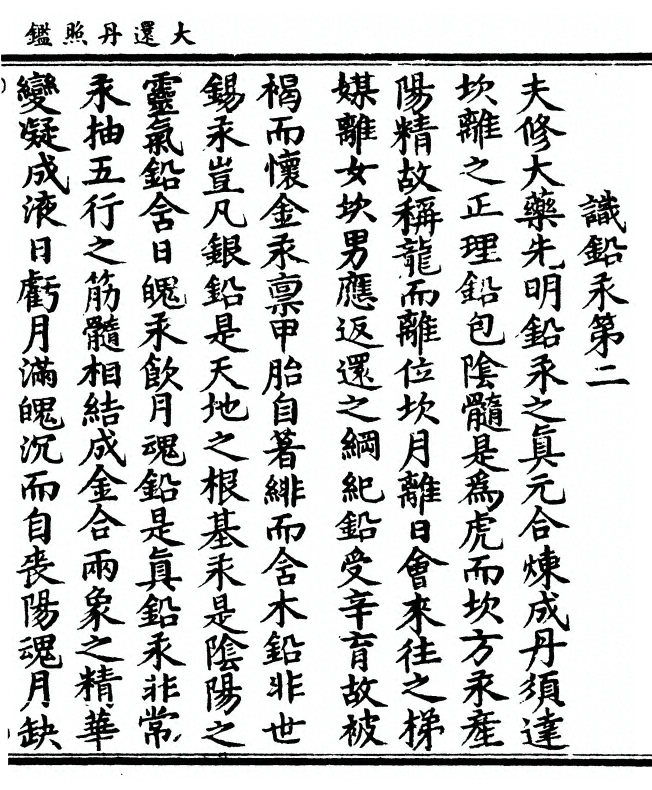 大還丹照鑑
識鉛汞第二
夫修大藥先明鉛汞之眞元合煉成丹須達
坎離之正理鉛包陰髓是爲虎而坎方汞產
陽精故稱龍而離位坎月離日會來往之梯
媒離女坎男應返還之綱紀鉛受辛育故被
褐而懷金汞稟甲胎自著緋而含木鉛非世
錫汞豈凡銀鉛是天地之根基汞是陰陽之
靈氣鉛含日魄汞飲月魂鉛是眞鉛汞非常
汞抽五行之筋髓相結成金合兩象之精華
變凝成液日虧月滿魄沉而自喪陽魂月缺